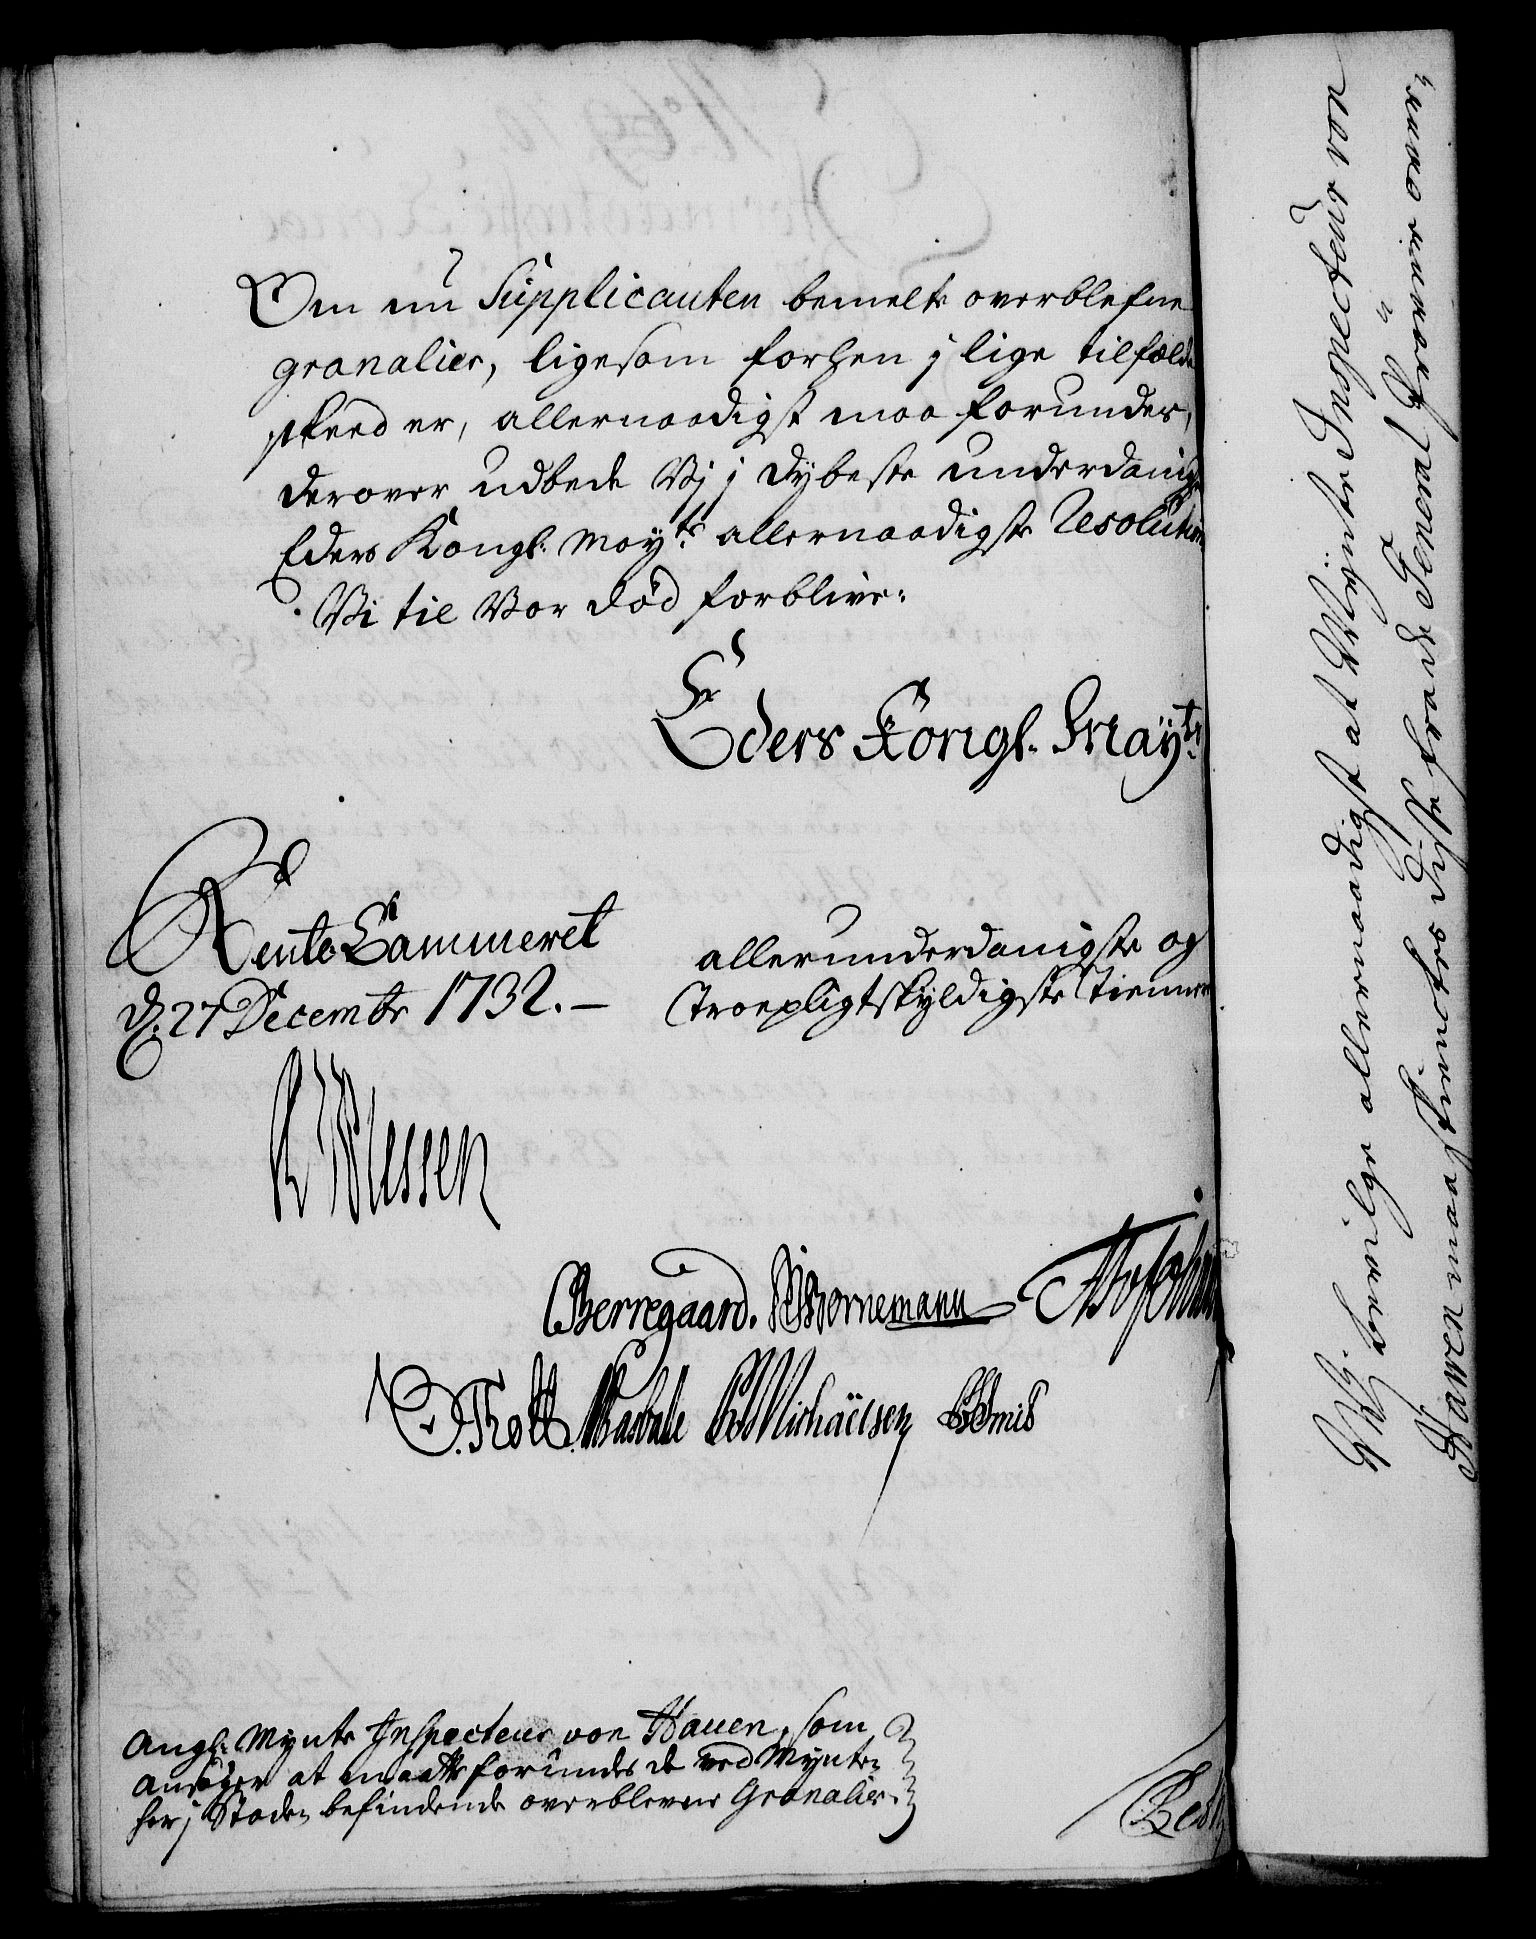 Om nu Supplicanten bemelte overblefne
granalier, ligesom forhen j lige tilfælde
skeed er, allernaadigst maa forundes,
derover udbede Vj j dybeste underdanig
Eders Kongl: Mayts allernaadigste Resolution
Vi til Vor død forblive:
Eders Königl. Mayts
RenteCammeret
d: 27 Decembr 1732. —
allerunderdanigste og
Troepligtskyldigste Tienner
Plessen
Berregaard. Bornemann
Michaelsen
Angl: Mynte Inspecteur von Hauen, som
ansøger at maatte forundes de ved Mynten
her j Staden befindende overblevne Granalier.
Vj bevilge allernaadigst at Mynte Inspecteur von
Hawen maa tienotes disse fra de General Prøver over,,